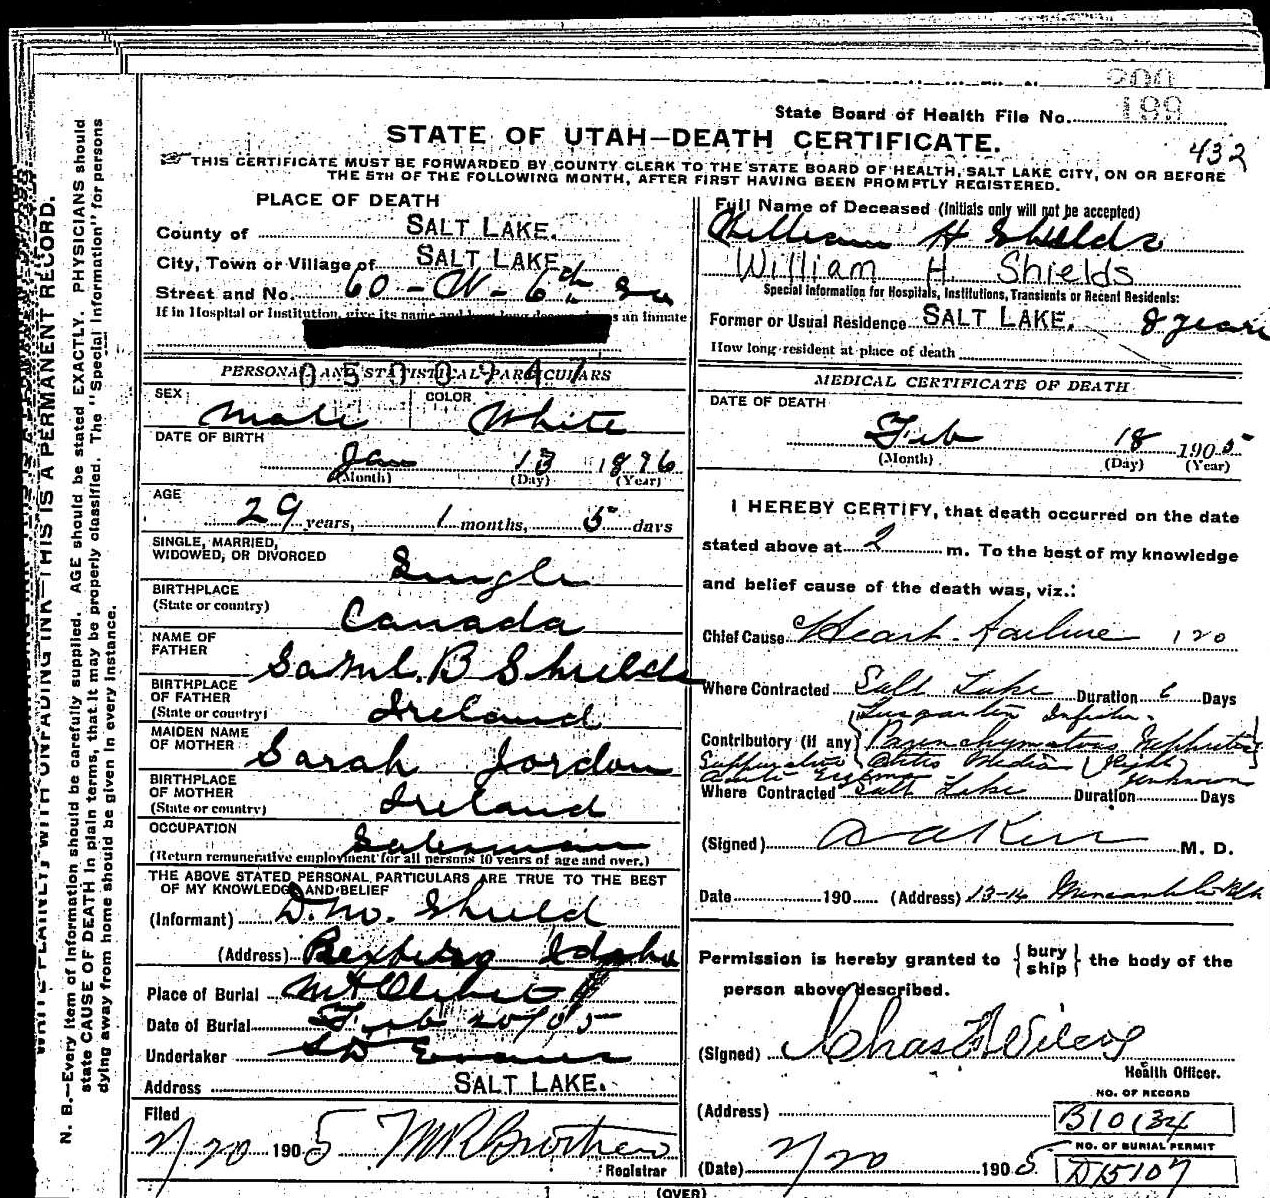 200
State Board of Health File No. 199
STATE OF UTAH—DEATH CERTIFICATE.
432
THIS CERTIFICATE MUST BE FORWARDED BY COUNTY CLERK TO THE STATE BOARD OF HEALTH, SALT LAKE CITY, ON OR BEFORE
THE 5TH OF THE FOLLOWING MONTH, AFTER FIRST HAVING BEEN PROMPTLY REGISTERED.
THIS IS A PERMANENT RECORD.
N. B.—Every item of information should be carefully supplied. AGE should be stated EXACTLY. PHYSICIANS should
state CAUSE OF DEATH in plain terms, that it may be properly classified. The "Special Information" for persons
dying away from home should be given in every instance.
PLACE OF DEATH
County of SALT LAKE.
City, Town or Village of SALT LAKE
Street and No. 60 - W - 6th So
If in Hospital or Institution, give its name and
as an inmate
05000947
PERSONAL AND STATISTICAL PARTICULARS
SEX Male COLOR White
DATE OF BIRTH
Jan 13 1876
(Month) (Day) (Year)
AGE
29 years, 1 months, 5 days
SINGLE, MARRIED,
WIDOWED, OR DIVORCED Single
BIRTHPLACE
(State or country) Canada
NAME OF
FATHER Saml. B Shields
BIRTHPLACE
OF FATHER
(State or country) Ireland
MAIDEN NAME
OF MOTHER Sarah Jordon
BIRTHPLACE
OF MOTHER
(State or country) Ireland
OCCUPATION Salesman
(Return remunerative employment for all persons 10 years of age and over.)
THE ABOVE STATED PERSONAL PARTICULARS ARE TRUE TO THE BEST
OF MY KNOWLEDGE AND BELIEF
(Informant) D. M. Shield
(Address) Rexburg Idaho
Place of Burial Mt Olivet
Date of Burial Feb 20/05
Undertaker S D Evans
Address SALT LAKE.
Filed
2/20 1905
Registrar
Full Name of Deceased (Initials only will not be accepted)
William H Shields
William H. Shields
Special Information for Hospitals, Institutions, Transients or Recent Residents:
Former or Usual Residence SALT LAKE. 8 years
How long resident at place of death
MEDICAL CERTIFICATE OF DEATH
DATE OF DEATH
Feb 18 1905
(Month) (Day) (Year)
I HEREBY CERTIFY, that death occurred on the date
stated above at 2 m. To the best of my knowledge
and belief cause of the death was, viz.:
Chief Cause Heart Failure 120
Where Contracted Salt Lake Duration 6 Days
Contributory (if any) Parenchymatous Nephritis
Suppurative Otitis Media (Right)
Acute Eczema unknown
Where Contracted Salt Lake Duration Days
(Signed) A A Kerr M. D.
Date 190 (Address) 13-14
Permission is hereby granted to { bury
ship } the body of the
person above described.
(Signed) Chas F Wilcox
Health Officer.
NO. OF RECORD
(Address) B10134
NO. OF BURIAL PERMIT
(Date) 2/20 1905 D15107
(OVER)